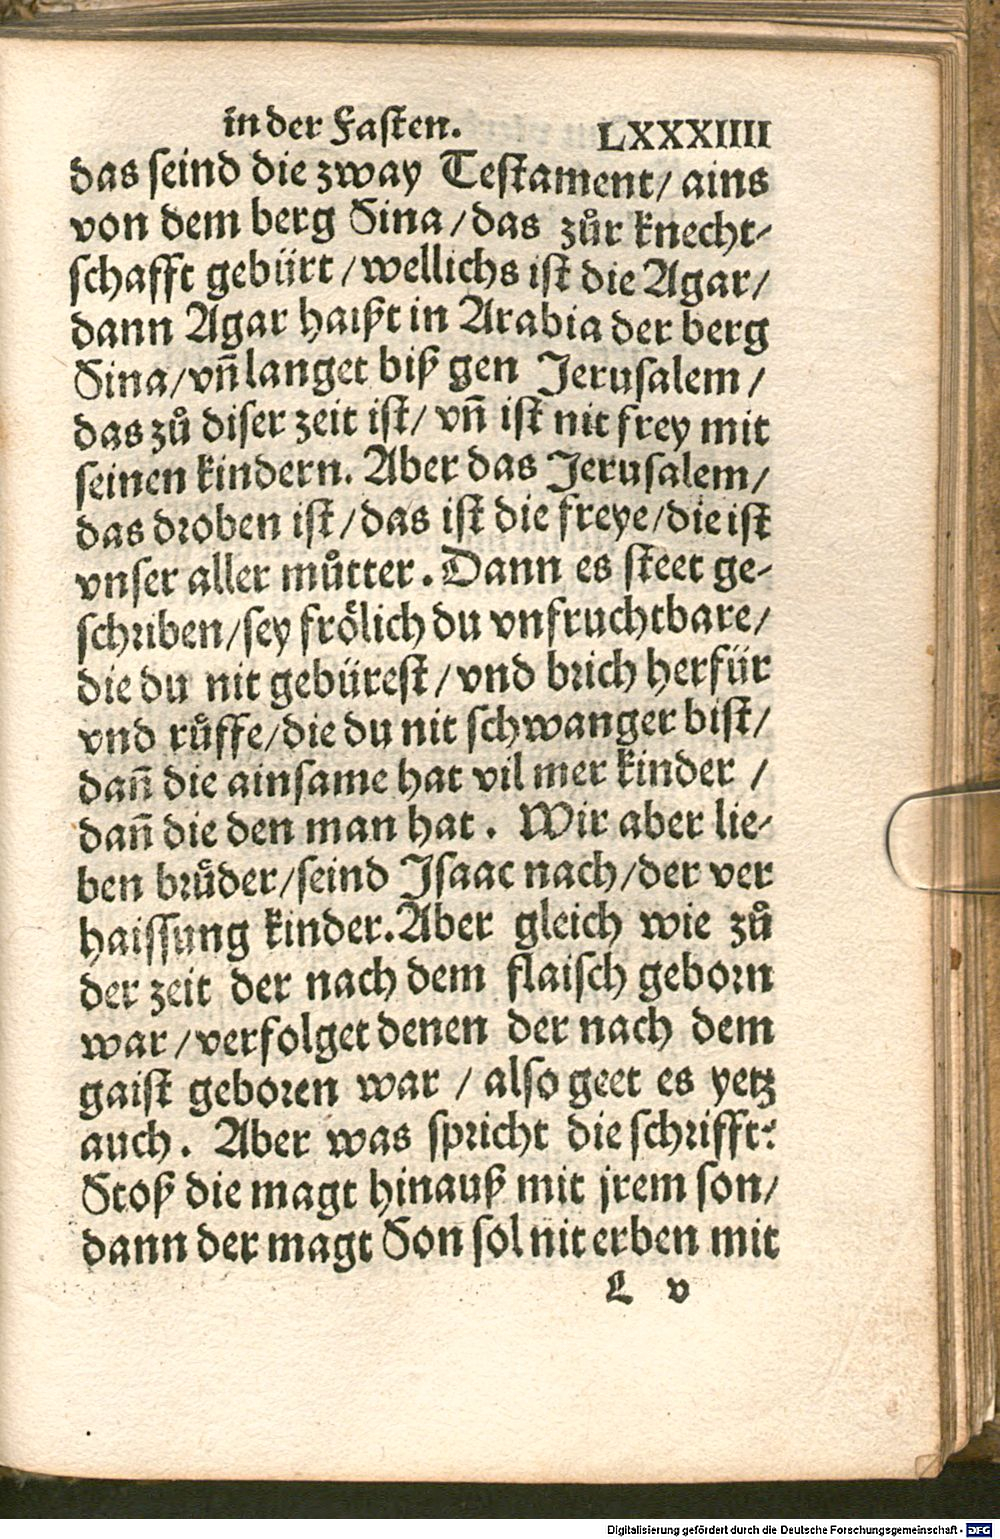 in der Fasten. LXXXIIII
das seind die zway Testament/ ains
von dem berg Sina/das zůr knecht⸗
schafft gebürt/wellichs ist die Agar/
dann Agar haißt in Arabia der berg
Sina/vñ langet biß gen Jerusalem/
das zů diser zeit ist/ vñ ist nit frey mit
seinen kindern. Aber das Jerusalem/
das droben ist/das ist die freye/die ist
vnser aller můtter. Dann es steet ge⸗
schriben/sey frölich du vnfruchtbare/
die du nit gebürest/vnd brich herfür
vnd růffe/die du nit schwanger bist/
dañ die ainsame hat vil mer kinder /
dañ die den man hat. Wir aber lie⸗
ben brůder/seind Isaac nach/der ver
haissung kinder. Aber gleich wie zů
der zeit der nach dem flaisch geborn
war/verfolget denen der nach dem
gaist geboren war / also geet es yetz
auch. Aber was spricht die schrifft?
Stoß die magt hinauß mit jrem son/
dann der magt Son sol nit erben mit
L v
Digitalisierung gefördert durch die Deutsche Forschungsgemeinschaft - DFG